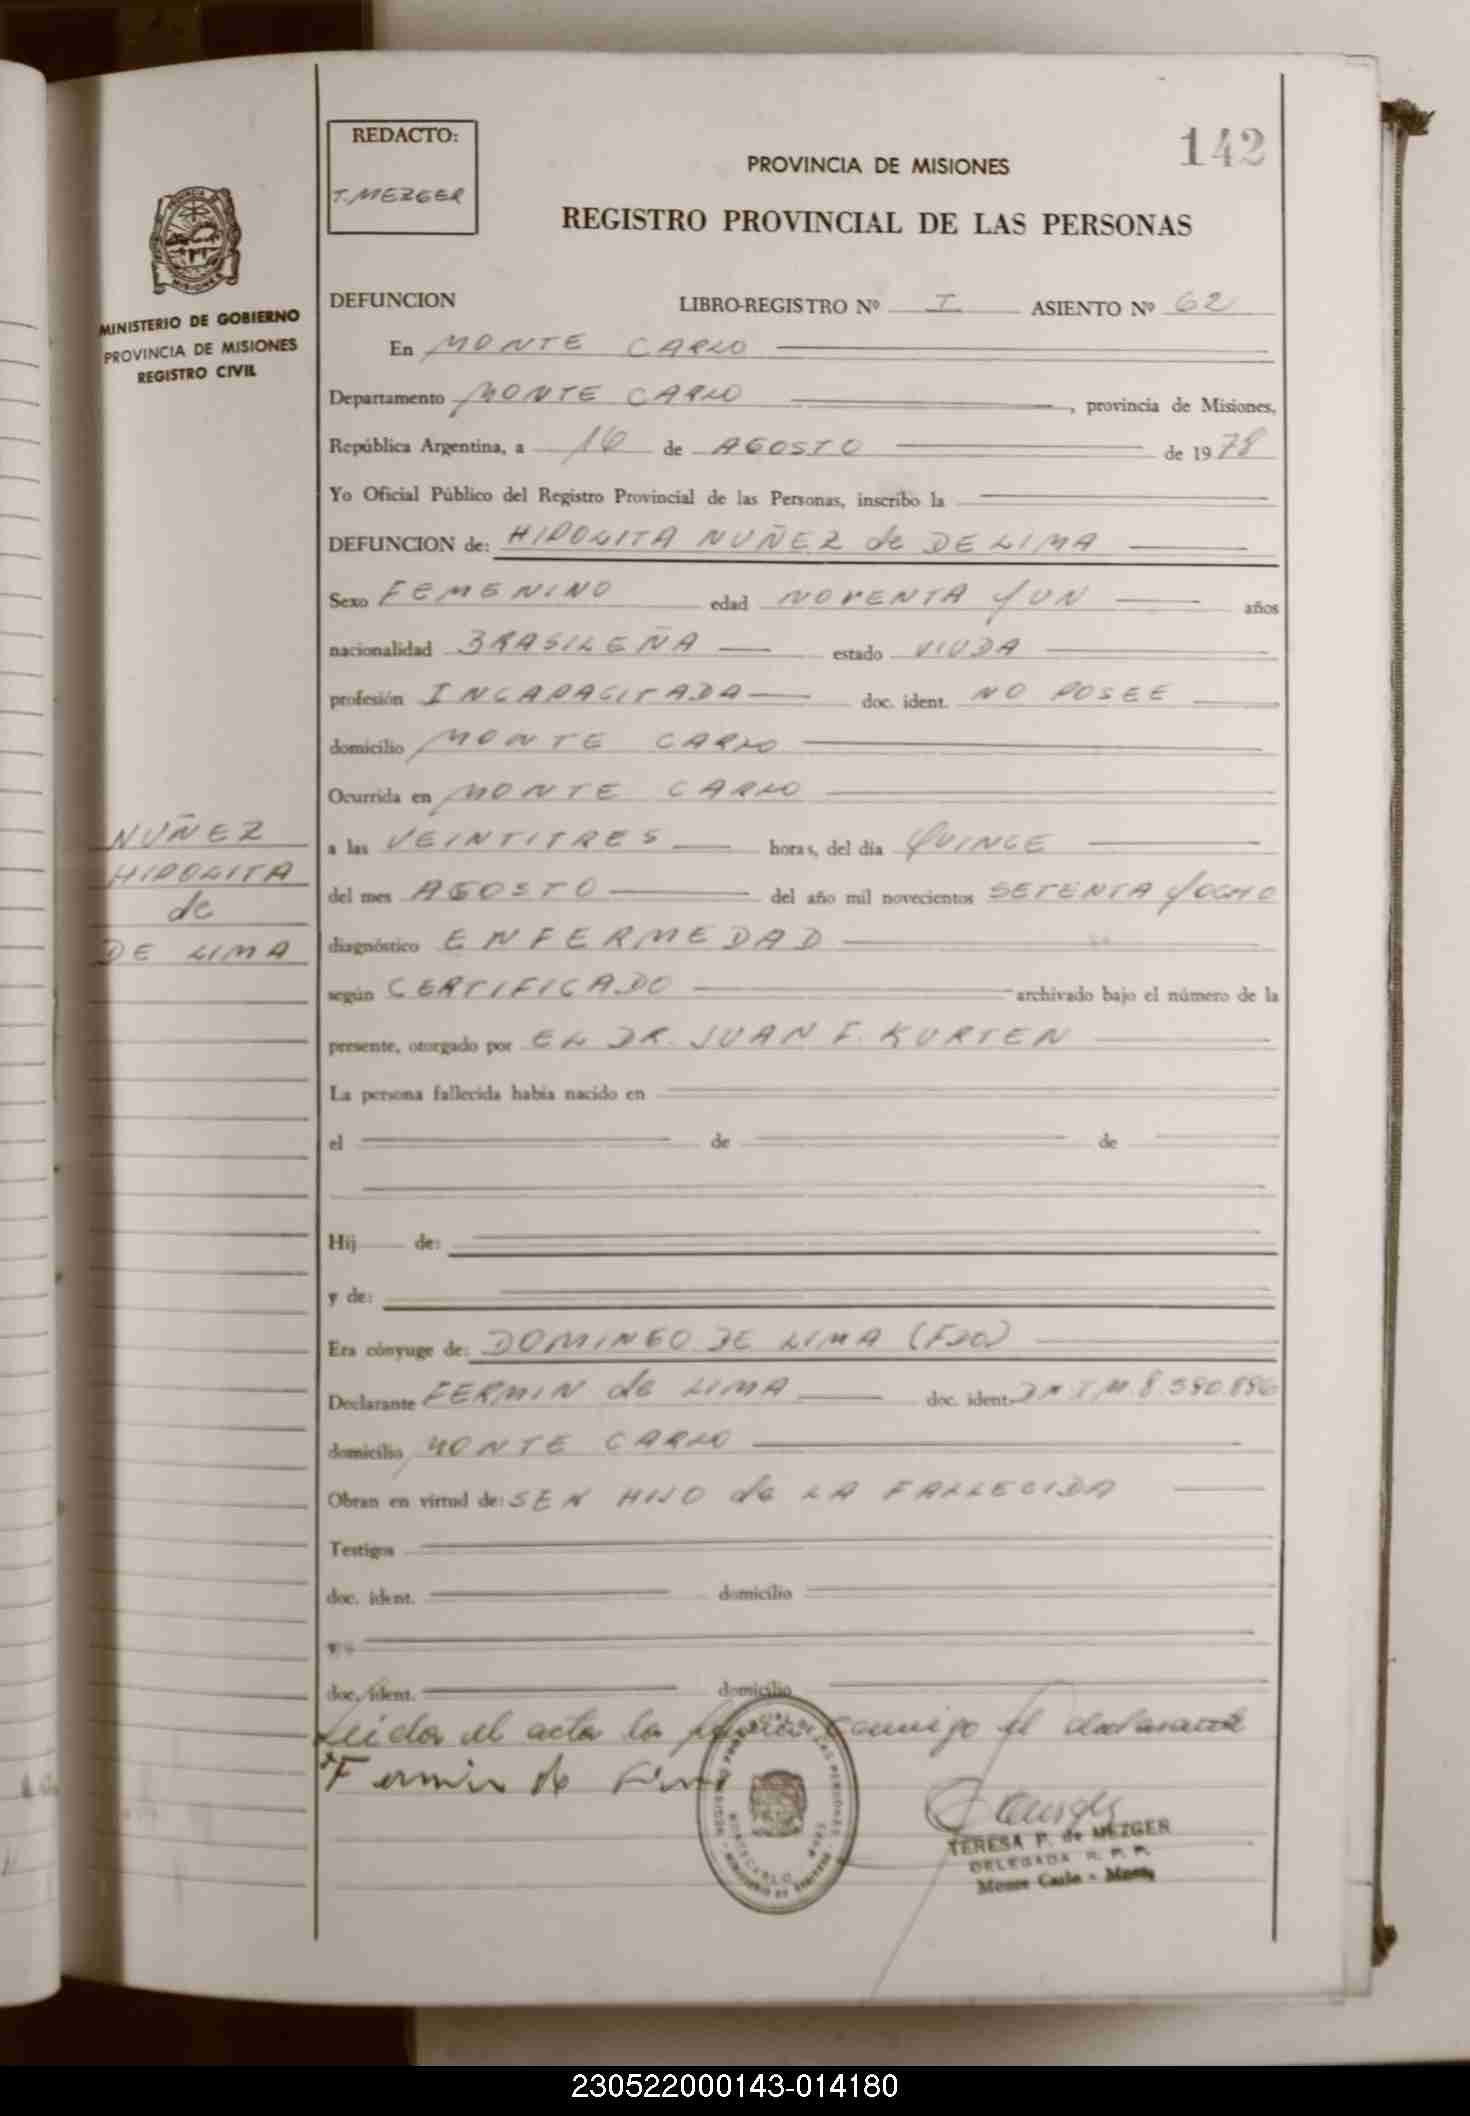 142
REDACTO:
T. MEZGER
PROVINCIA DE MISIONES
REGISTRO PROVINCIAL DE LAS PERSONAS
MINISTERIO DE GOBIERNO
PROVINCIA DE MISIONES
REGISTRO CIVIL
DEFUNCION LIBRO-REGISTRO Nº I ASIENTO Nº 62
En MONTE CARLO
Departamento MONTE CARLO, provincia de Misiones,
República Argentina, a 16 de AGOSTO de 1978
Yo Oficial Público del Registro Provincial de las Personas, inscribo la
DEFUNCION de: HIPOLITA NUÑEZ de DE LIMA
Sexo FEMENINO edad NOVENTA Y UN años
nacionalidad BRASILEÑA estado VIUDA
profesión INCAPACITADA doc. ident. NO POSEE
domicilio MONTE CARLO
Ocurrida en MONTE CARLO
NUÑEZ
HIPOLITA
de
DE LIMA
a las VEINTITRES horas, del día QUINCE
del mes AGOSTO del año mil novecientos SETENTA Y OCHO
diagnóstico ENFERMEDAD
según CERTIFICADO archivado bajo el número de la
presente, otorgado por EL DR. JUAN F. KURTEN
La persona fallecida había nacido en
el de de
Hij de:
y de:
Era cónyuge de: DOMINGO DE LIMA (FDO)
Declarante FERMIN de LIMA doc. ident. M. 8.590.896
domicilio MONTE CARLO
Obran en virtud de: SER HIJO de LA FALLECIDA
Testigos
doc. ident. domicilio
y
doc. ident. domicilio
Leida el acta la firma conmigo el declarante
Fermin de Lima
TERESA P. de MEZGER
DELEGADA R. P. P.
Monte Carlo - Mnes.
230522000143-014180